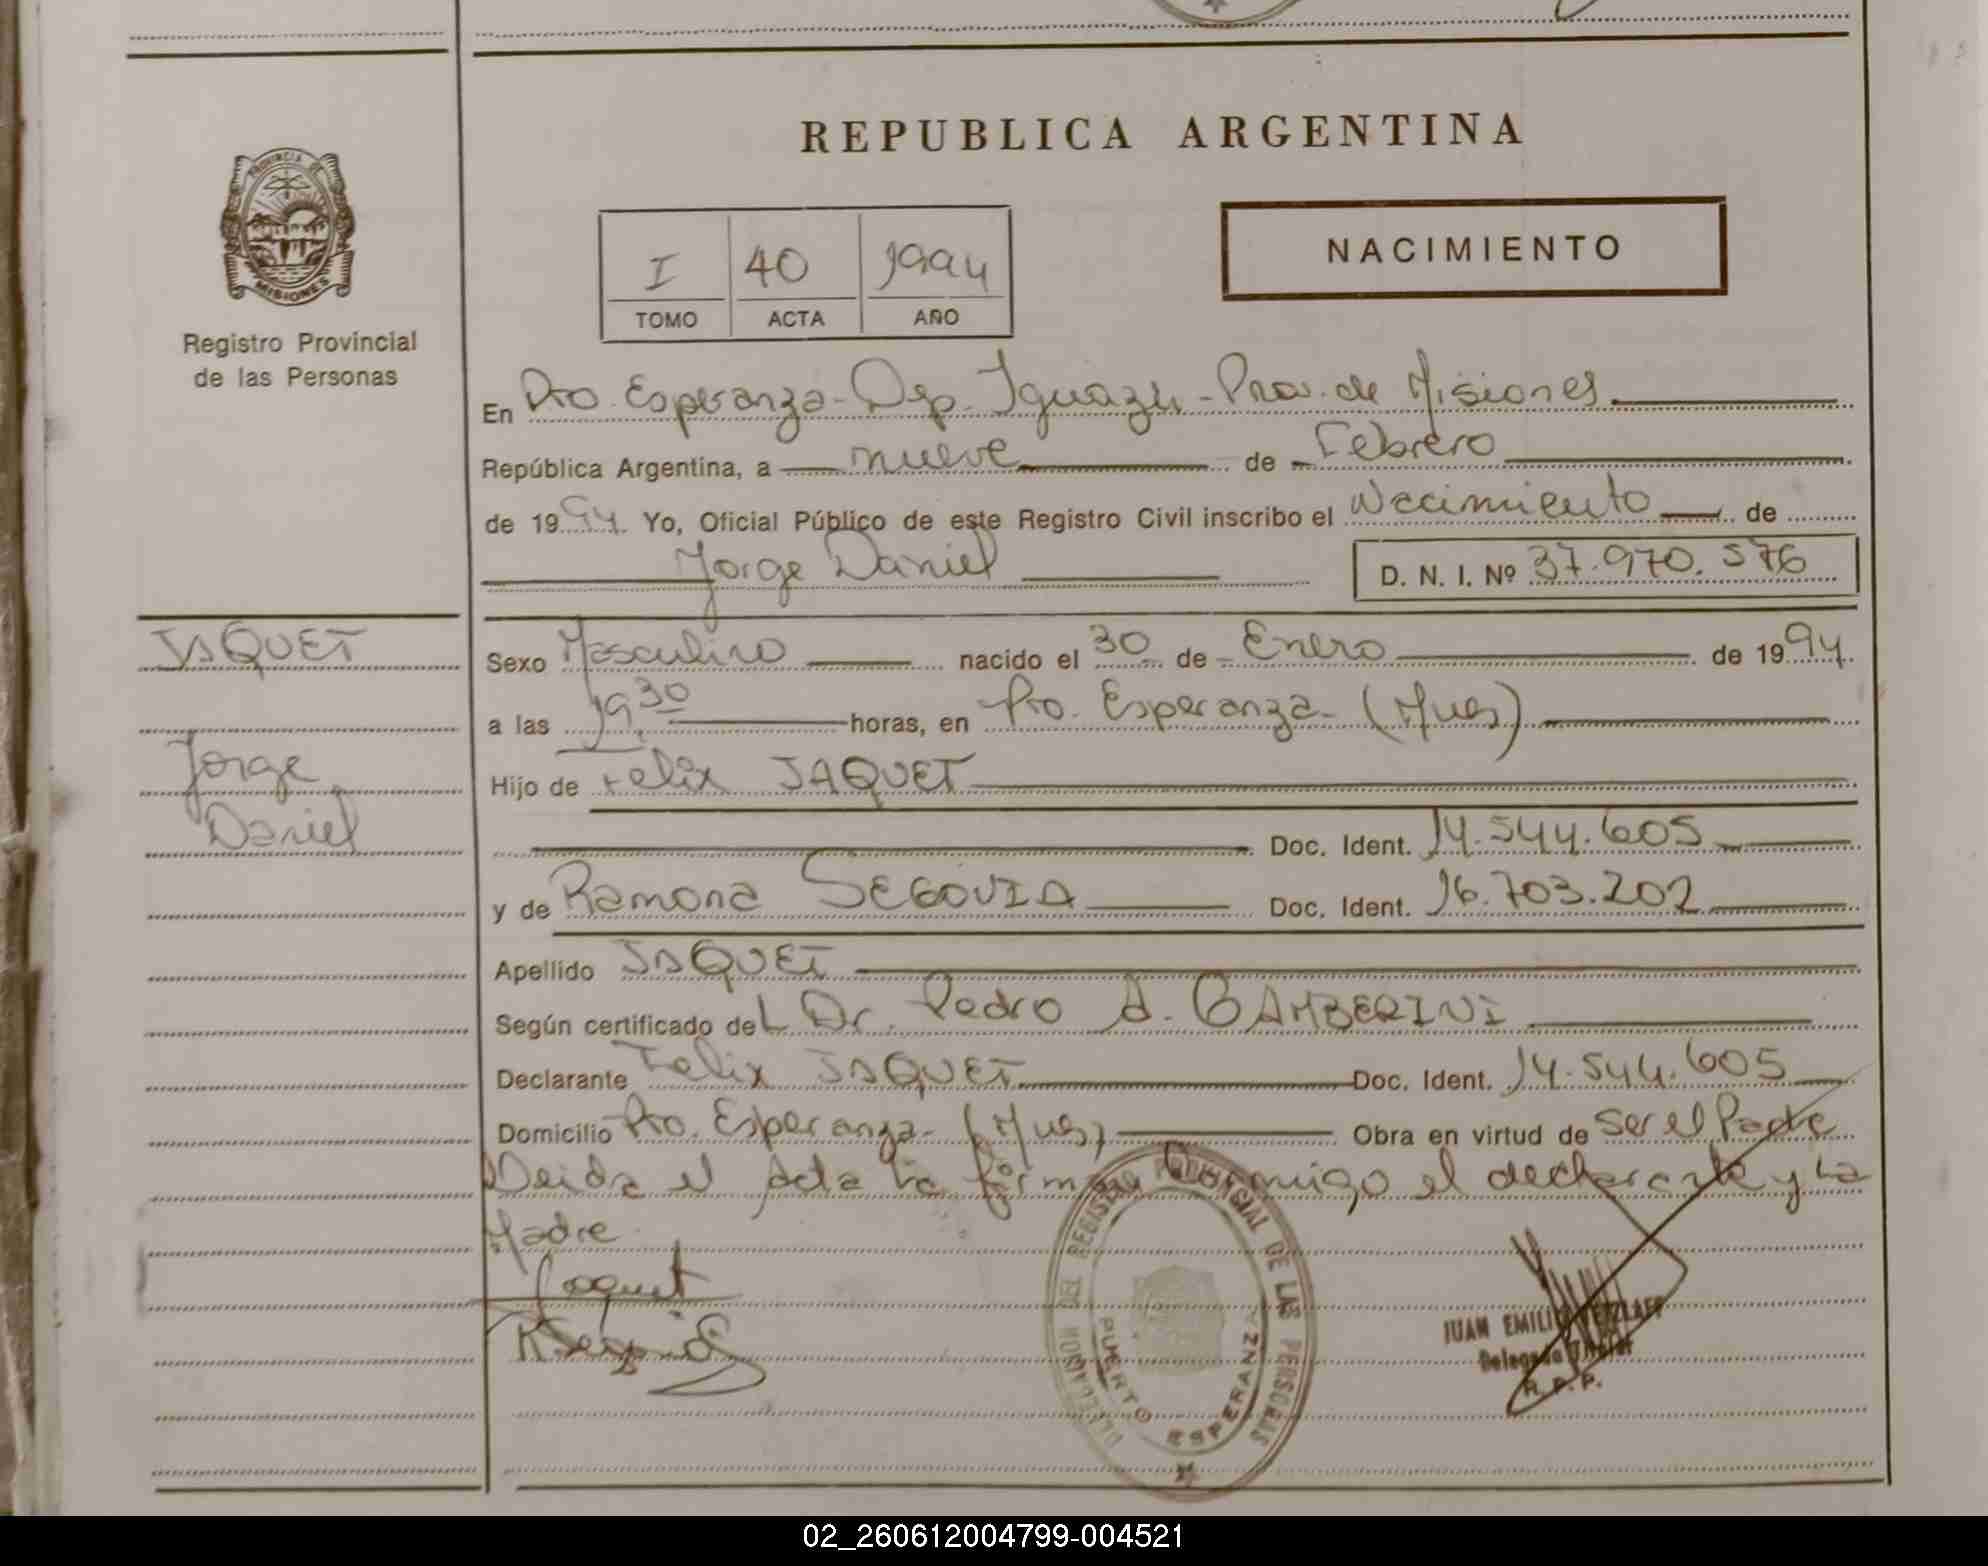 REPUBLICA ARGENTINA
PROVINCIA DE
MISIONES
Registro Provincial
de las Personas
I 40 1994
TOMO ACTA AÑO
NACIMIENTO
En Pto. Esperanza - Dep. Iguazu - Prov. de Misiones
República Argentina, a nueve de Febrero
de 1994 Yo, Oficial Público de este Registro Civil inscribo el Nacimiento de
Jorge Daniel D. N. I. Nº 37.970.576
JAQUET
Jorge
Daniel
Sexo Masculino nacido el 30 de Enero de 1994
a las 19 30 horas, en Pto. Esperanza - (Mnes)
Hijo de Felix JAQUET
Doc. Ident. 14.544.605
y de Ramona SEGOVIA Doc. Ident. 16.703.202
Apellido JAQUET
Según certificado del Dr. Pedro A. GAMBERINI
Declarante Felix JAQUET Doc. Ident. 14.544.605
Domicilio Pto. Esperanza - (Mnes) Obra en virtud de ser el Padre
Leida el Acta la firman Conmigo el declarante y la
Madre
Jaquet
DELEGACION DEL REGISTRO PROVINCIAL DE LAS PERSONAS
PUERTO ESPERANZA
JUAN EMILIO
Delegado Titular
R. P. P.
02_260612004799-004521